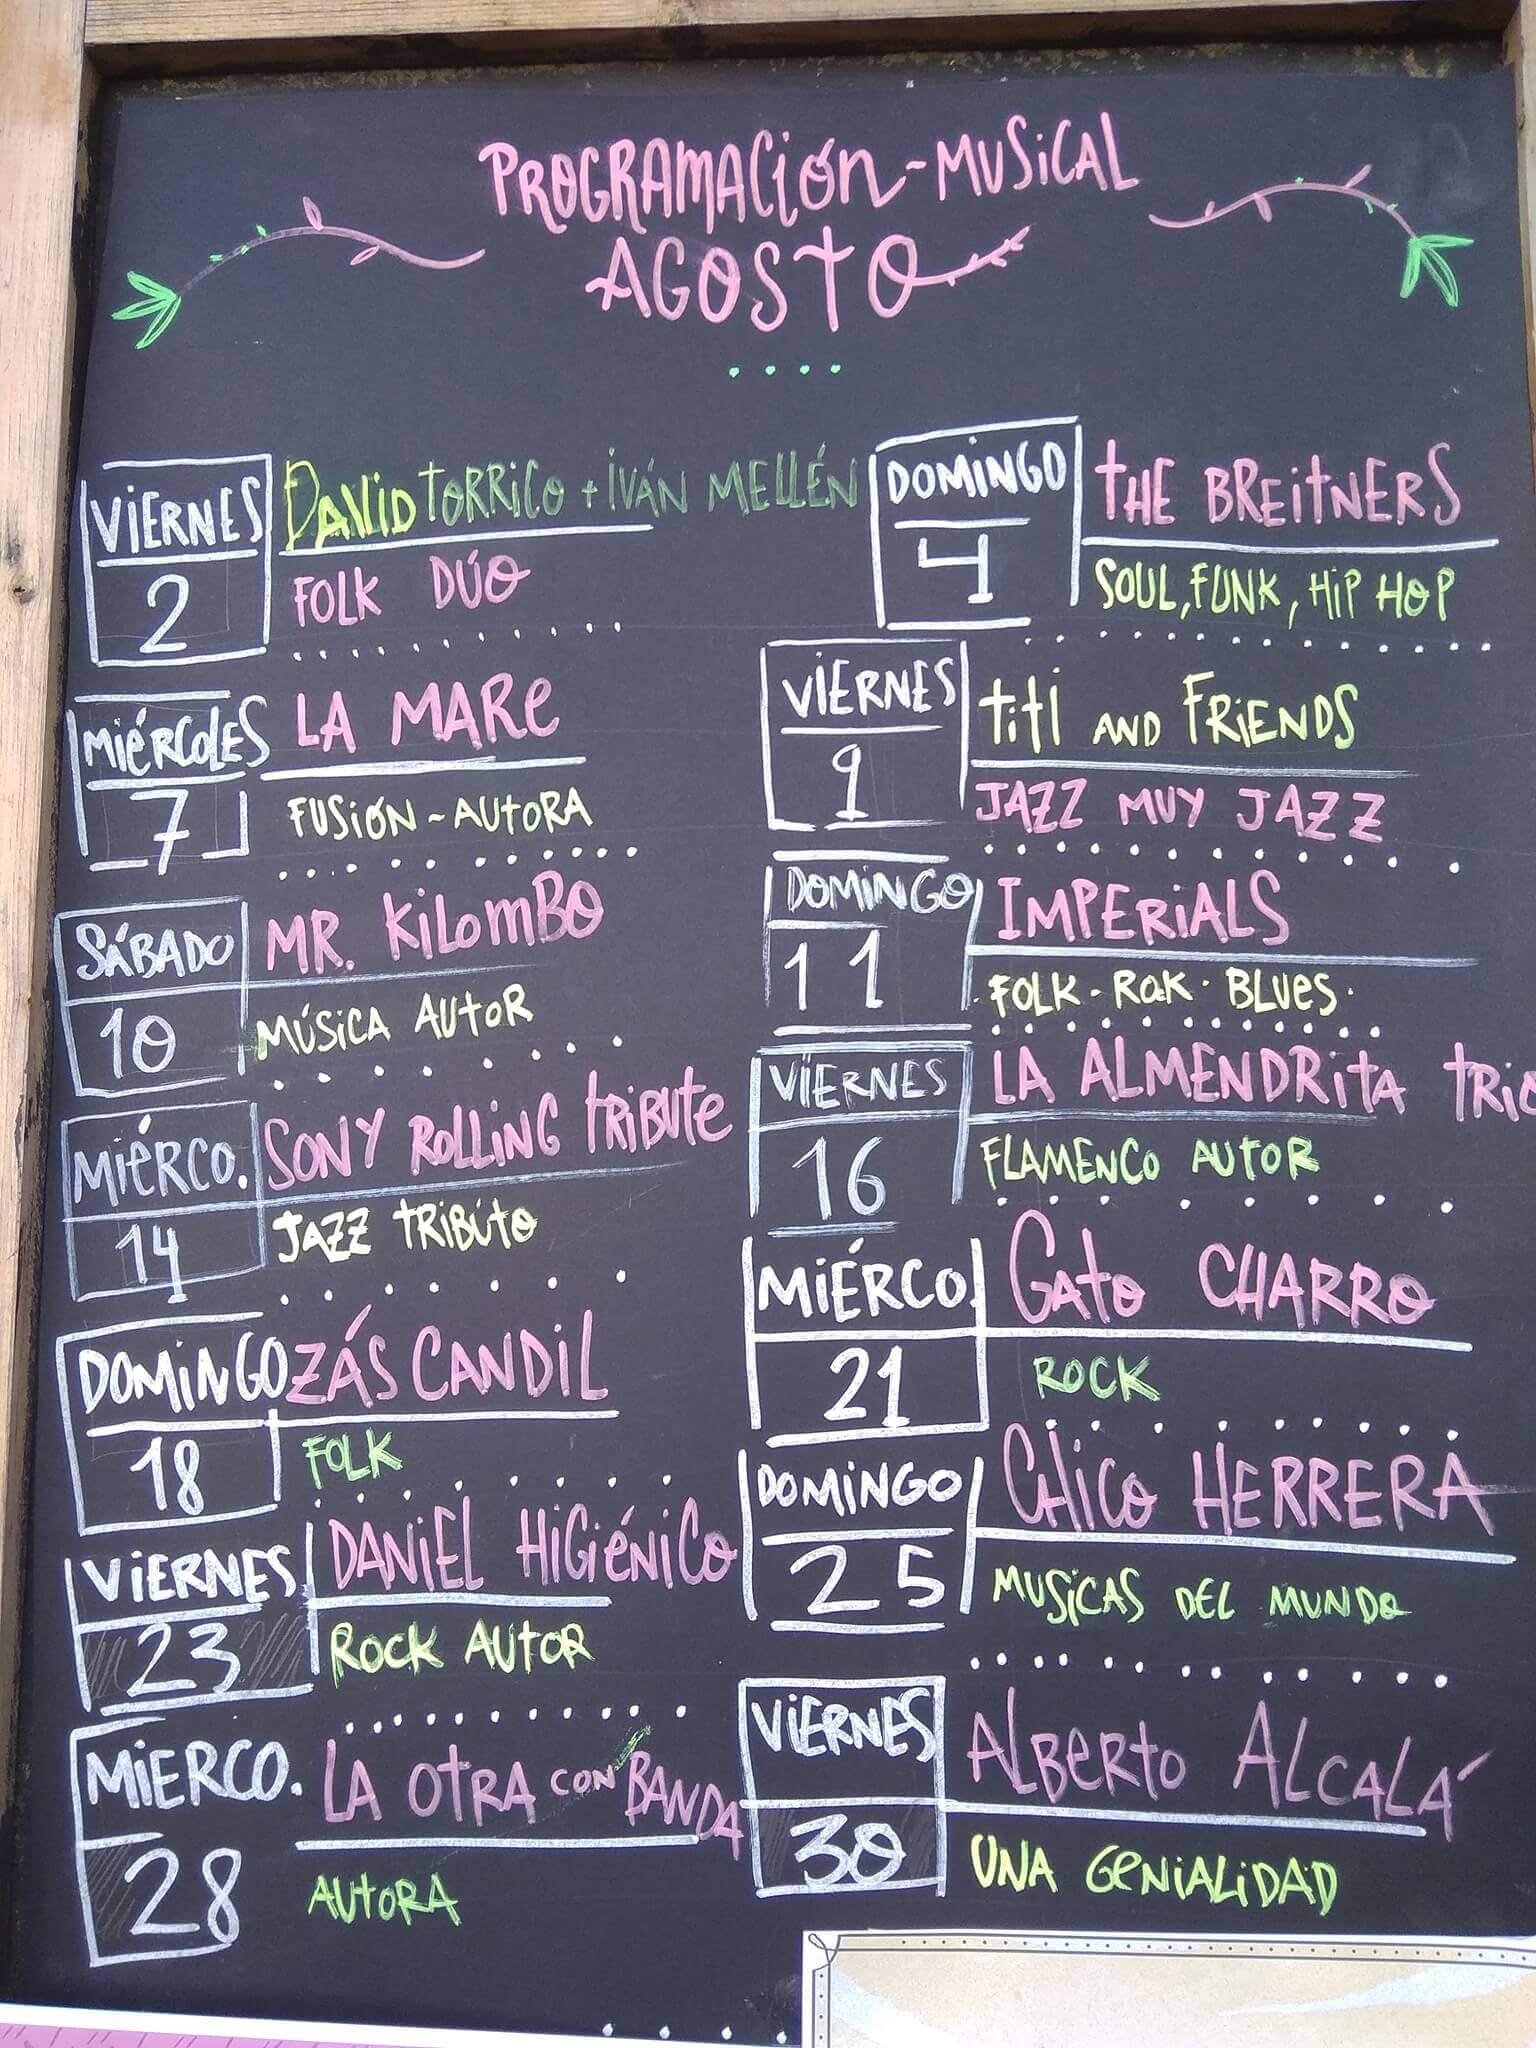 PROGRAMACIÓN - MUSICAL
AGOSTO
VIERNES
2
DAVID TORRICO + IVÁN MELLÉN
FOLK DÚO
DOMINGO
4
THE BREITNERS
SOUL, FUNK, HIP HOP
MIÉRCOLES
7
LA MARE
FUSIÓN - AUTORA
VIERNES
9
TITI AND FRIENDS
JAZZ MUY JAZZ
SÁBADO
10
MR. KILOMBO
MÚSICA AUTOR
DOMINGO
11
IMPERIALS
· FOLK - ROCK · BLUES ·
MIÉRCO.
14
SONY ROLLING TRIBUTE
JAZZ TRIBUTO
VIERNES
16
LA ALMENDRITA TRIO
FLAMENCO AUTOR
DOMINGO
18
ZÁS CANDIL
FOLK
MIÉRCO.
21
GATO CHARRO
ROCK
VIERNES
23
DANIEL HIGIÉNICO
ROCK AUTOR
DOMINGO
25
CHICO HERRERA
MUSICAS DEL MUNDO
MIERCO.
28
LA OTRA CON BANDA
AUTORA
VIERNES
30
ALBERTO ALCALÁ
UNA GENIALIDAD